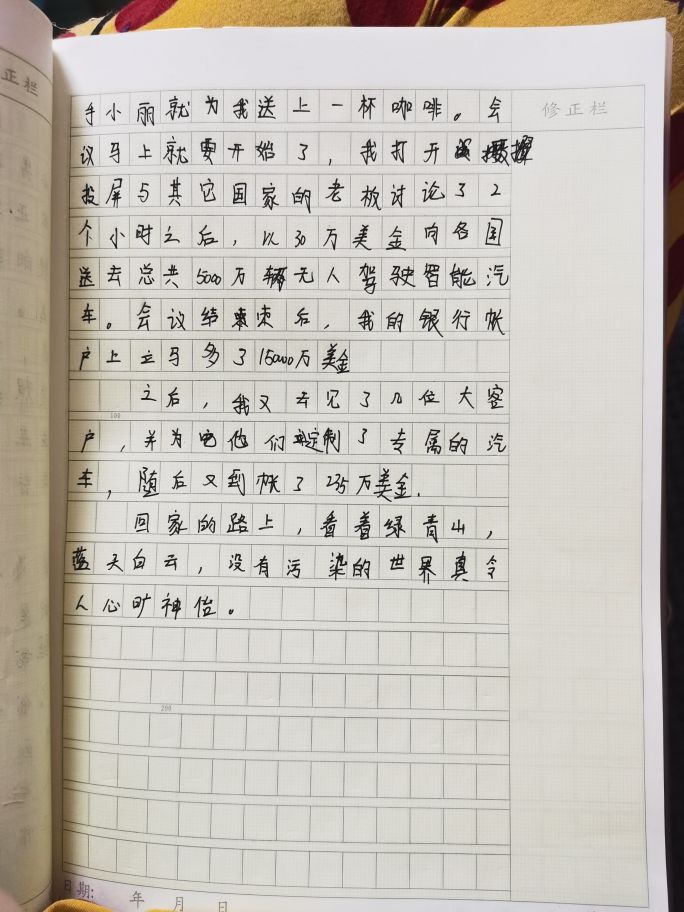 正栏
修正栏
手小丽就为我送上一杯咖啡。会
议马上就要开始了，我打开
投屏与其它国家的老板讨论了2
个小时之后，以30万美金向各国
送去总共5000万辆无人驾驶智能汽
车。会议结束后，我的银行帐
户上立马多了15000万美金
之后，我又去见了几位大客
100
户，并为他们定制了专属的汽
车，随后又到帐了235万美金.
回家的路上，看着绿青山，
蓝天白云，没有污染的世界真令
人心旷神怡。
200
日期: 年 月 日